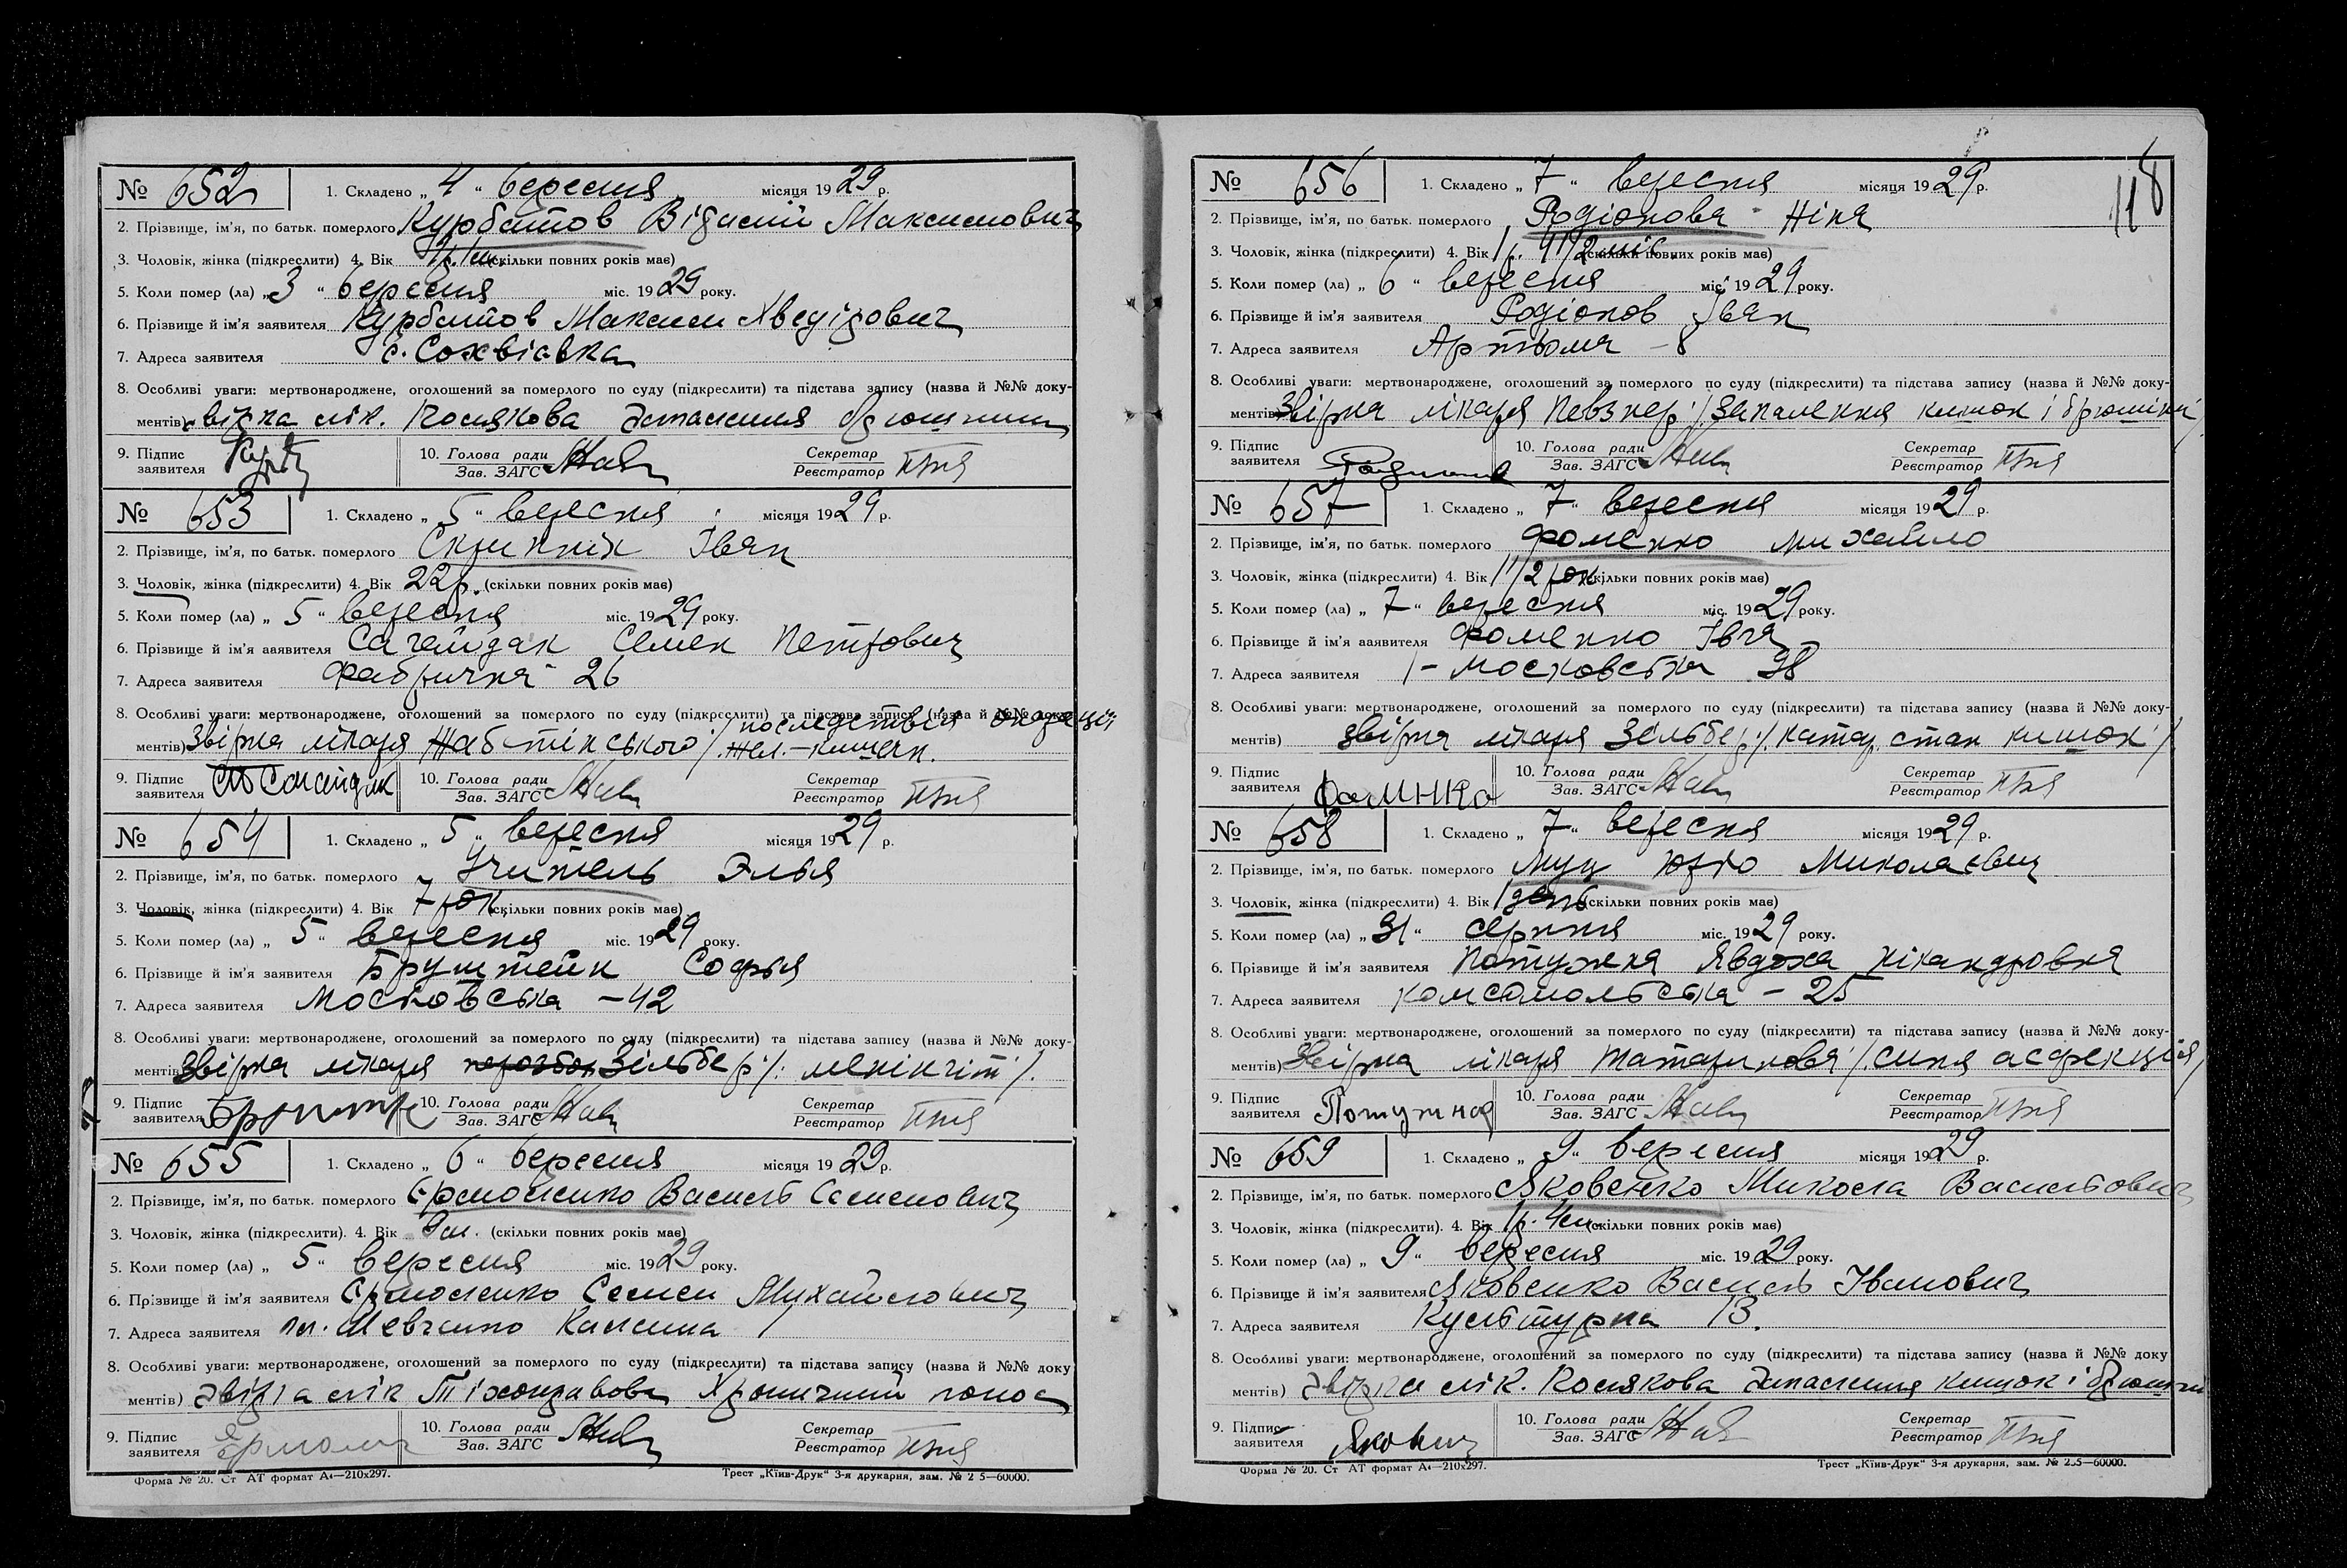 № 652 1. Складено „ 4 “ вересня місяця 1929 р.
2. Прізвище, ім'я, по батьк. померлого Курбатов Віталій Максимович
3. Чоловік, жінка (підкреслити) 4. Вік (скільки повних років має)
5. Коли помер (ла) „ 3 “ вересня міс. 1929 року.
6. Прізвище й ім'я заявителя Курбатов Максим Хведірович
7. Адреса заявителя с. Сохвіавка
8. Особливі уваги: мертвонароджене, оголошений за померлого по суду (підкреслити) та підстава запису (назва й №№ доку-
ментів) звірка лік. Колякова Запалення
9. Підпис заявителя 10. Голова ради Зав. ЗАГС Секретар Реєстратор
№ 653 1. Складено „ 5 “ вересня місяця 1929 р.
2. Прізвище, ім'я, по батьк. померлого Скрипнік Іван
3. Чоловік, жінка (підкреслити) 4. Вік 22 р. (скільки повних років має)
5. Коли помер (ла) „ 5 “ вересня міс. 1929 року.
6. Прізвище й ім'я заявителя Сагайдак Семен Петрович
7. Адреса заявителя Фабрична 26
8. Особливі уваги: мертвонароджене, оголошений за померлого по суду (підкреслити) та підстава запису (назва й №№ доку-
ментів) Звірка лікаря Жаботінського /последствія операції жел.-кишечн.
9. Підпис заявителя Сагайдак 10. Голова ради Зав. ЗАГС Секретар Реєстратор
№ 654 1. Складено „ 5 “ вересня місяця 1929 р.
2. Прізвище, ім'я, по батьк. померлого Учитель Элья
3. Чоловік, жінка (підкреслити) 4. Вік 7 рок. (скільки повних років має)
5. Коли помер (ла) „ 5 “ вересня міс. 1929 року.
6. Прізвище й ім'я заявителя Бруштейн Софья
7. Адреса заявителя Московська - 42
8. Особливі уваги: мертвонароджене, оголошений за померлого по суду (підкреслити) та підстава запису (назва й №№ доку-
ментів) Звірка лікаря Зільбер /: менінгіт /.
9. Підпис заявителя 10. Голова ради Зав. ЗАГС Секретар Реєстратор
№ 655 1. Складено „ 6 “ вересня місяця 1929 р.
2. Прізвище, ім'я, по батьк. померлого Єрмоленко Василь Семенович
3. Чоловік, жінка (підкреслити). 4. Вік 9 м. (скільки повних років має)
5. Коли помер (ла) „ 5 “ вересня міс. 1929 року.
6. Прізвище й ім'я заявителя Єрмоленко Семен Михайлович
7. Адреса заявителя Шевченко
8. Особливі уваги: мертвонароджене, оголошений за померлого по суду (підкреслити) та підстава запису (назва й №№ доку
ментів) Звірка лік Хронічний понос
9. Підпис заявителя 10. Голова ради Зав. ЗАГС Секретар Реєстратор
Форма № 20. Ст АТ формат А4—210х297. Трест „Київ-Друк“ 3-я друкарня, зам. № 2 5—60000.
118
№ 656 1. Складено „ 7 “ вересня місяця 1929 р.
2. Прізвище, ім'я, по батьк. померлого Родіонова Ніна
3. Чоловік, жінка (підкреслити) 4. Вік 1 р. 4 1/2 міс. (скільки повних років має)
5. Коли помер (ла) „ 6 “ вересня міс. 1929 року.
6. Прізвище й ім'я заявителя Родіонов Іван
7. Адреса заявителя Артьома - 8
8. Особливі уваги: мертвонароджене, оголошений за померлого по суду (підкреслити) та підстава запису (назва й №№ доку-
ментів) Звірка лікаря Певзнер /: Запалення кишок і брюшини /
9. Підпис заявителя 10. Голова ради Зав. ЗАГС Секретар Реєстратор
№ 657 1. Складено „ 7 “ вересня місяця 1929 р.
2. Прізвище, ім'я, по батьк. померлого Фоменко Михайло
3. Чоловік, жінка (підкреслити) 4. Вік 1 1/2 рок. (скільки повних років має)
5. Коли помер (ла) „ 7 “ вересня міс. 1929 року.
6. Прізвище й ім'я заявителя Фоменко Івга
7. Адреса заявителя 1 - Московська 38
8. Особливі уваги: мертвонароджене, оголошений за померлого по суду (підкреслити) та підстава запису (назва й №№ доку-
ментів) Звірка лікаря Зільбер /: катар. стан кишок /
9. Підпис заявителя 10. Голова ради Зав. ЗАГС Секретар Реєстратор
№ 658 1. Складено „ 7 “ вересня місяця 1929 р.
2. Прізвище, ім'я, по батьк. померлого Муц Юрко Миколаєвич
3. Чоловік, жінка (підкреслити) 4. Вік 1 день (скільки повних років має)
5. Коли помер (ла) „ 31 “ серпня міс. 1929 року.
6. Прізвище й ім'я заявителя Потужня Явдоха Нікандровна
7. Адреса заявителя Комсомольська - 25
8. Особливі уваги: мертвонароджене, оголошений за померлого по суду (підкреслити) та підстава запису (назва й №№ доку-
ментів) Звірка лікаря Татаринова /: синя асфекція /
9. Підпис заявителя Потужная 10. Голова ради Зав. ЗАГС Секретар Реєстратор
№ 659 1. Складено „ 9 “ вересня місяця 1929 р.
2. Прізвище, ім'я, по батьк. померлого Яковенко Микола Васильович
3. Чоловік, жінка (підкреслити). 4. Вік 1 р. 4 м. (скільки повних років має)
5. Коли помер (ла) „ 9 “ вересня міс. 1929 року.
6. Прізвище й ім'я заявителя Яковенко Василь Іванович
7. Адреса заявителя Культурна 13.
8. Особливі уваги: мертвонароджене, оголошений за померлого по суду (підкреслити) та підстава запису (назва й №№ доку
ментів) Звірка лік. Колякова Запалення кишок і брюшини
9. Підпис заявителя 10. Голова ради Зав. ЗАГС Секретар Реєстратор
Форма № 20. Ст АТ формат А4—210х297. Трест „Київ-Друк“ 3-я друкарня, зам. № 235—60000.